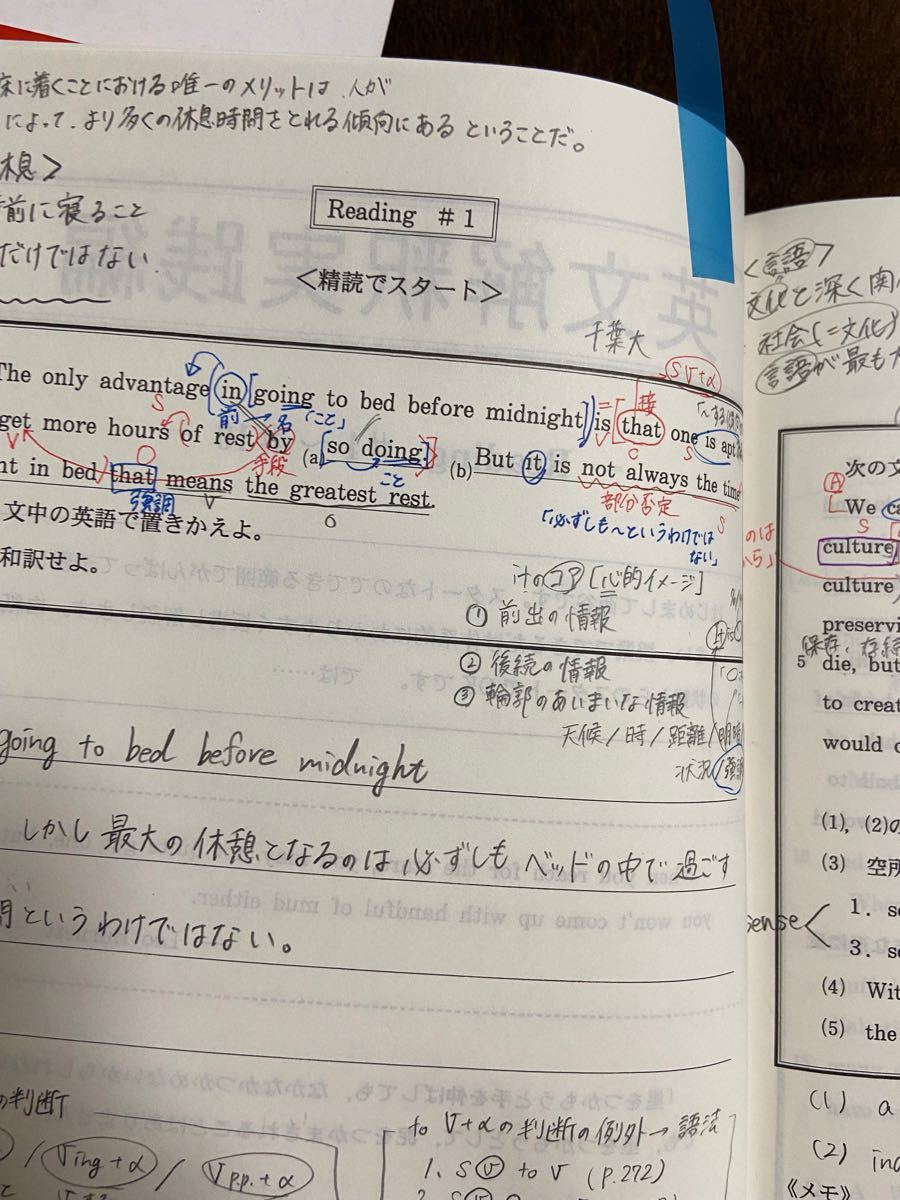 床に着くことにおける唯一のメリットは、人が
によって、より多くの休息時間をとれる傾向にある ということだ。
休息>
前に寝ること
だけではない.
Reading #1
<精読でスタート>
千葉大
SV+α
接
「~する
The only advantage (in [going to bed before midnight]) is [that one is apt
S
前
名
「こと」
V
C
S
get more hours of rest by (a) [so doing.] (b) But it is not always the time
V
O
手段
こと
部分否定
S
nt in bed that means the greatest rest.
強調
V
O
「必ずしも~というわけでは
ない」
文中の英語で置きかえよ。
和訳せよ。
itのコア [心的イメージ]
① 前出の情報
② 後続の情報
③ 輪郭のあいまいな情報
天候/時/距離/明暗
状況/強調
going to bed before midnight
しかし 最大の休憩となるのは 必ずしも ベッドの中で過ごす
間というわけではない。
の判断
/ Ving+α / Vpp.+α
to V+αの判断の例外→語法
1. S V to V (p.272)
<言語>
文化と深く関
社会(=文化)
言語が最も
次の文
A
We ca
S
culture
culture
preservi
保存、存続
5 die, but
to creat
would c
(1), (2)の
(3) 空所
1. s
sense
3. s
(4) Wit
(5) the
(1) a
(2) ind
《メモ》